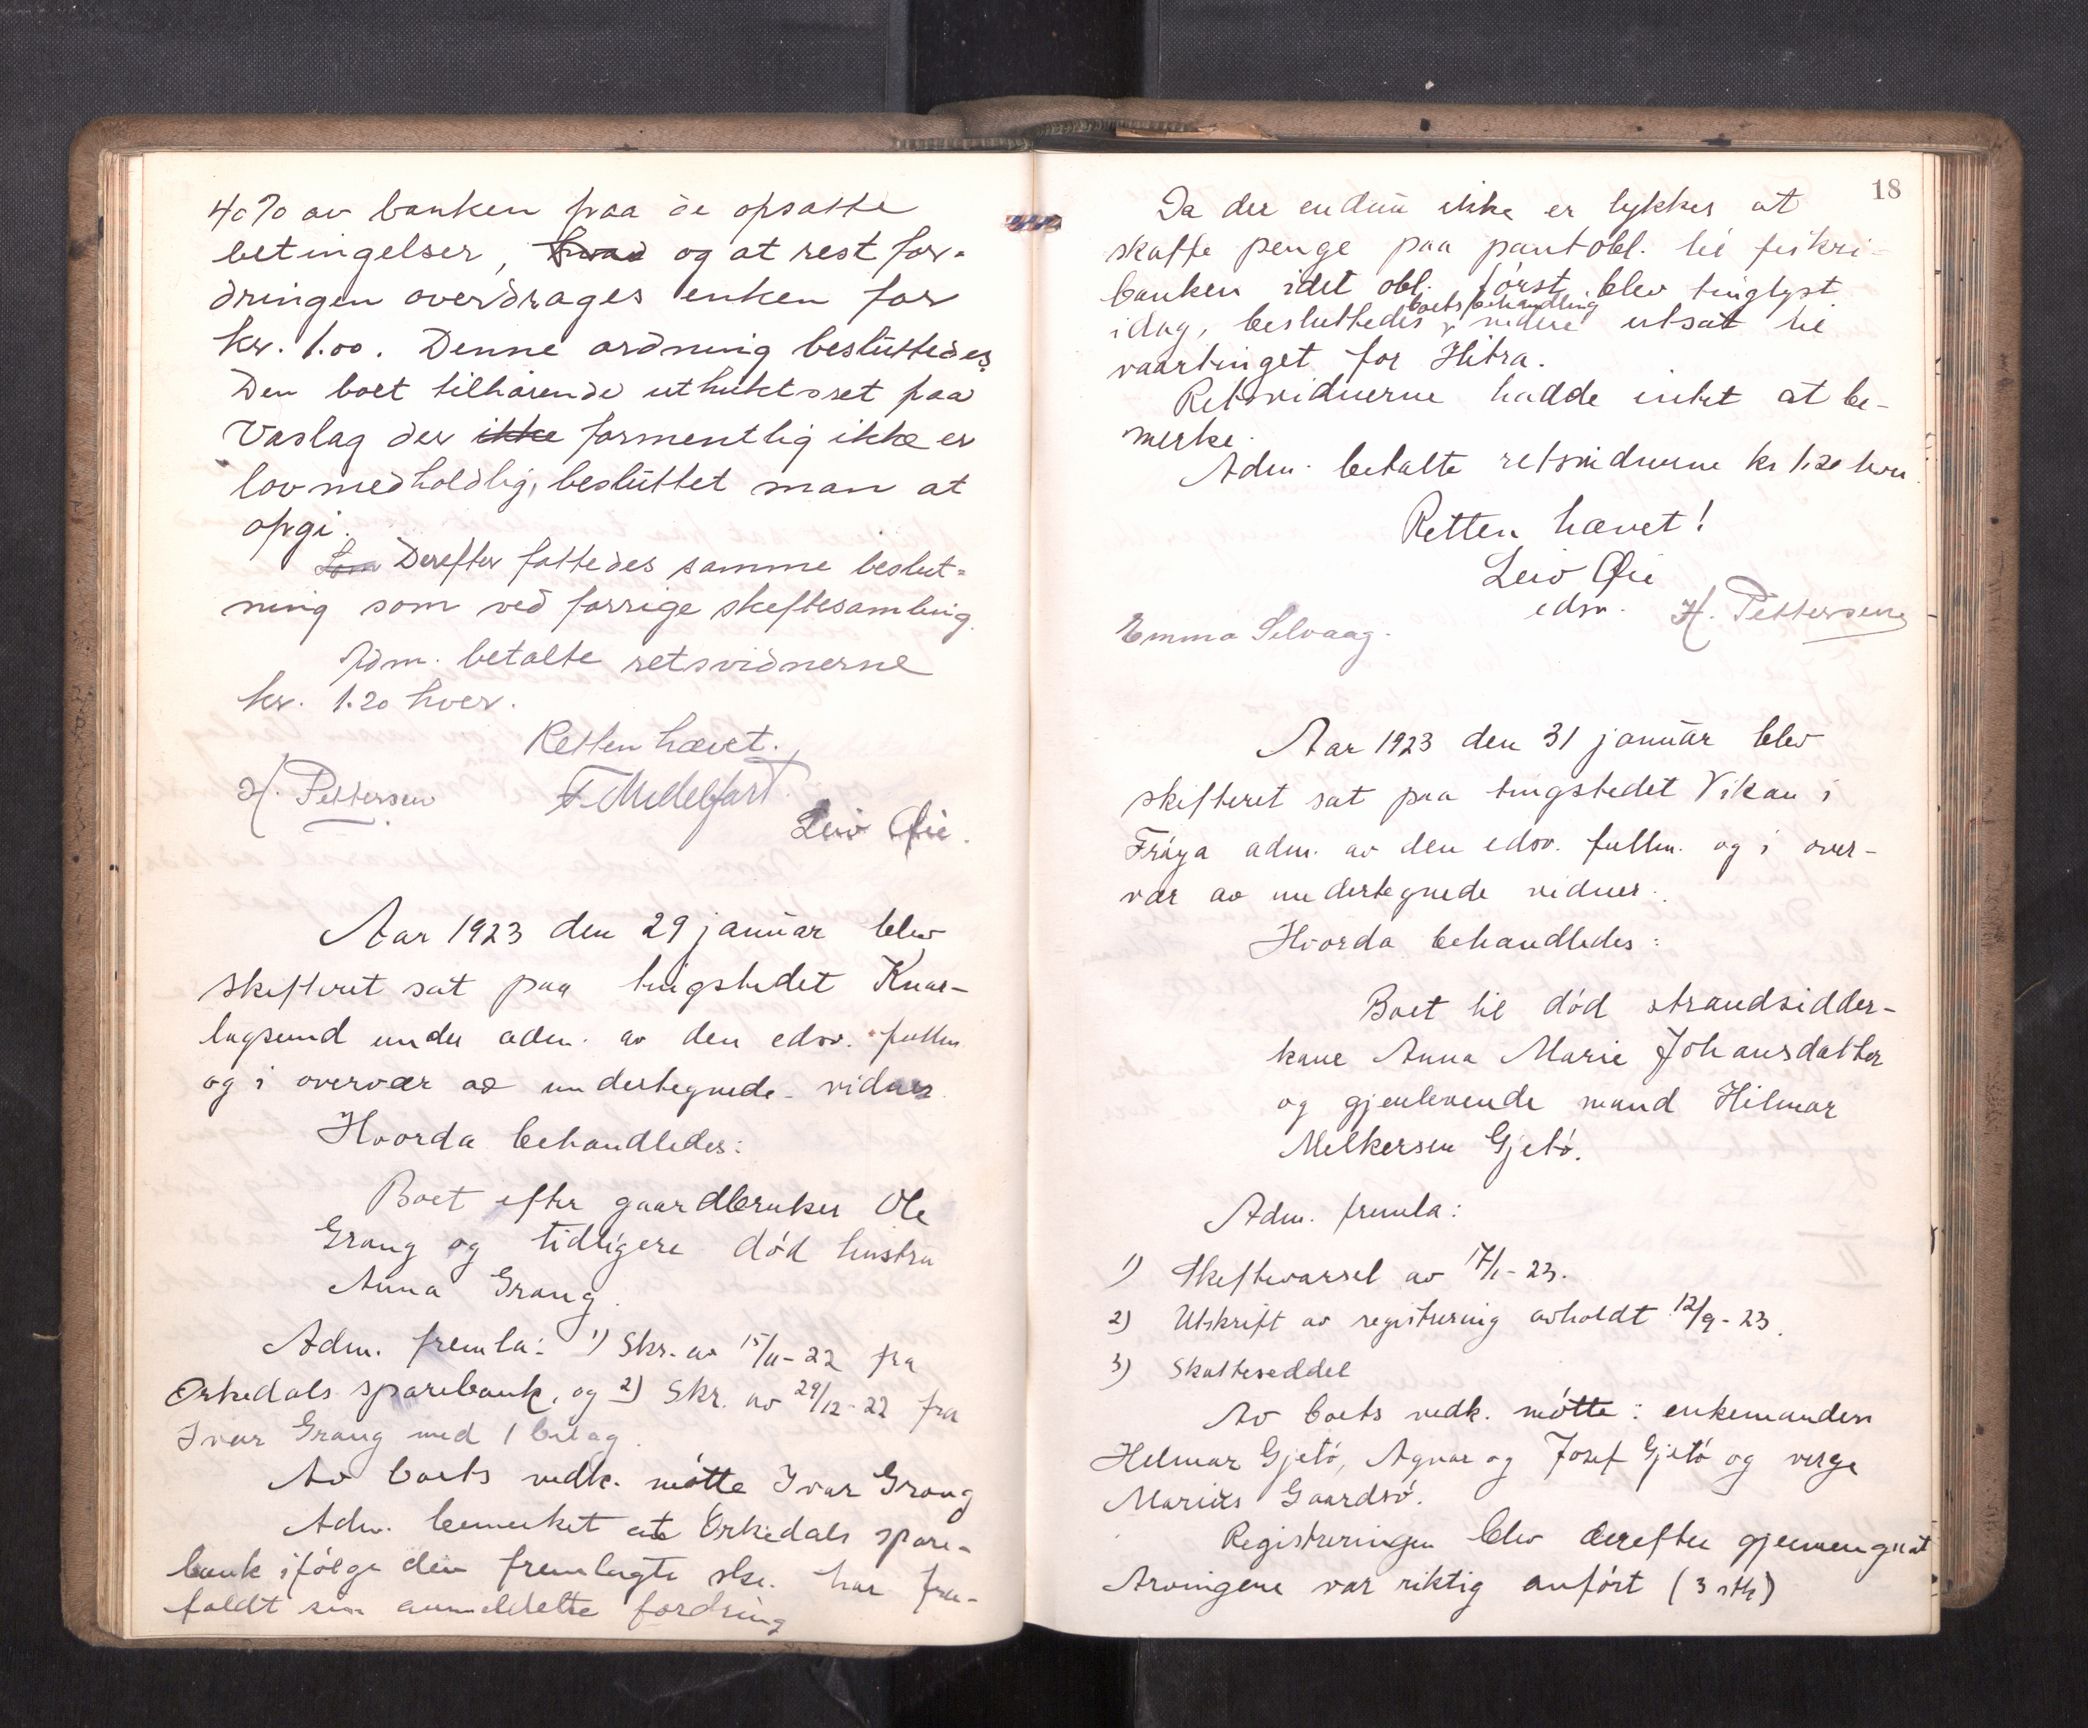 40% av banken paa de opsatte
betingelser, hvad og at rest for-
dringen overdrages enken for
kr. 1.00. Denne ordning besluttedes
Den boet tilhørende uthuktsret paa
Vaslag der ikke formentlig ikke er
lovmedholdlig, besluttet man at
opgi.
Som Derefter fattedes samme beslut-
ning som ved forrige skeftesamling.
Adm. betalte retsvidnerne
kr. 1.20 hver.
Retten hævet.
H. Pettersen F. Medelfart
Leiv Øie.
Aar 1923 den 29 januar blev
skifteret sat paa tingstedet Knar-
lagsund under adm. av den edsv. fullm
og i overvær av undertegnede vidner
Hvorda behandledes:
Boet efter gaardbruker Ole
Grang og tidligere død hustru
Anna Grang.
Adm. fremla: 1) Skr. av 15/11-22 fra
Orkedals sparebank, og 2) Skr. av 29/12-22 fra
Ivar Grang med 1 bilag.
Av boets vedk. møtte Ivar Grang
Adm. bemerket at Orkedals spare-
bank ifølge den fremlagte skr. har fra-
faldt sin anmeldte fordring
18
Da der endnu ikke er lykkes at
skaffe penge paa pantobl. til fiskri-
banken idet obl. først blev tinglyst
boets behandling
idag, besluttedes videre utsat til
vaartinget for Hitra.
Retsvidnerne hadde intet at be-
merke.
Adm. betalte retsvidnerne kr 1.20 hver.
Retten hævet!
Leiv Øie
edsv. H. Pettersen
Emma Selvaag.
Aar 1923 den 31 januar blev
skifteret sat paa tingstedet Vikan i
Frøya adm. av den edsv. fullm. og i over-
vær av undertegnede vidner.
Hvorda behandledes:
Boet til død strandsidder-
kone Anna Marie Johansdatter
og gjenlevende mand Hilmar
Melkersen Gjetø.
Adm. fremla:
1) Skiftevarsel av 17/1-23.
2) Utskrift av registrering avholdt 12/9-23.
3) Skatteseddel
Av boets vedk. møtte: enkemanden
Helmar Gjetø, Agnar og Josef Gjetø og verge
Marius Gaardsø.
Registreringen blev derefter gjennemgaat
Arvingene var riktig anført (3 stk)